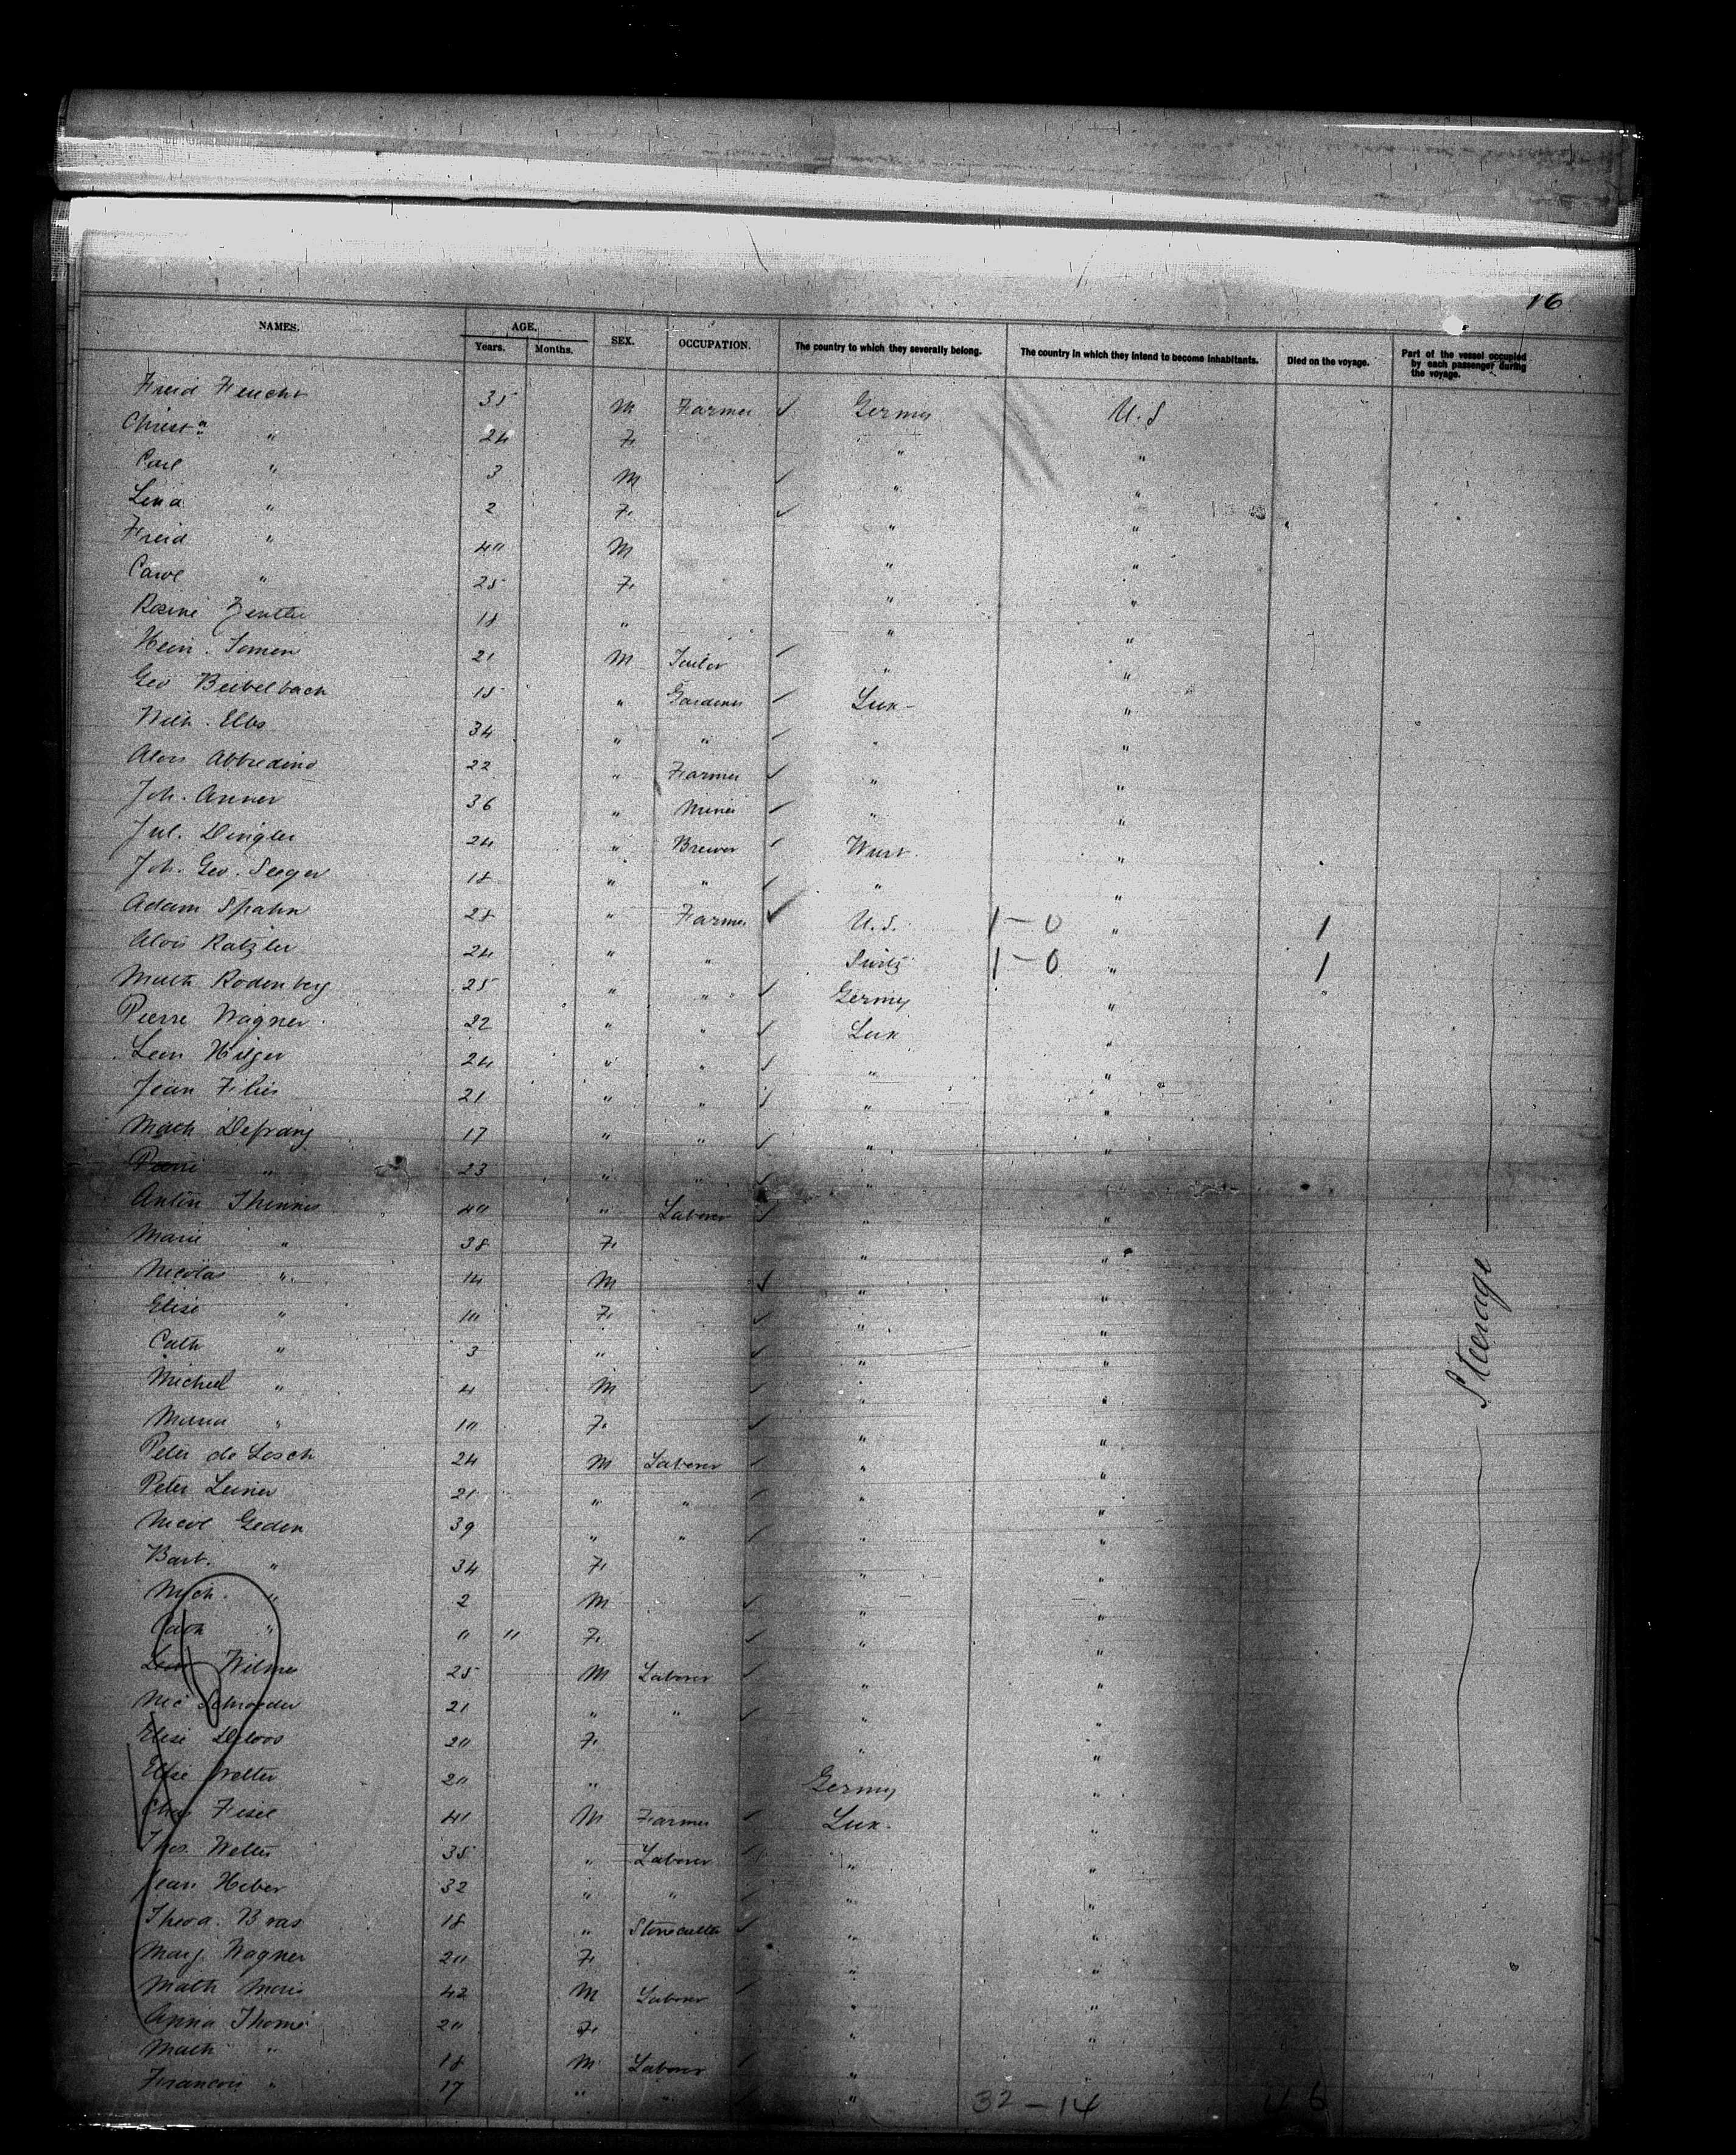 16
NAMES. AGE. Years. Months. SEX. OCCUPATION. The country to which they severally belong. The country in which they intend to become inhabitants. Died on the voyage. Part of the vessel occupied by each passenger during the voyage.
Freid Feucht 35 M Farmer ✓ Germy U.S
Christ a " 24 F. " "
Carl " 3 M ✓ " "
Lena " 2 F. ✓ " "
Freid " 40 M " "
Carol " 25 F. " "
Rosine 18 " " "
Hein. 21 M Tailor ✓ " "
Geo Beibelbach 15 " Gardener ✓ Lux- "
Nich. Elbs 34 " " ✓ " "
Alois 22 " Farmer ✓ " "
Joh. Anner 36 " Miner ✓ " "
Jul. Dingler 24 " Brewer ✓ Wurt. "
Joh. Geo. Seeger 18 " " ✓ " "
Adam Spahn 28 " Farmer ✓ U.S. 1-0 " 1
Alois Ratzler 24 " " 1-0 " 1
Math Rodenberg 25 " " ✓ Germy "
Pierre Wagner 22 " " ✓ Lux "
Leon Hilger 24 " " ✓ " "
Jean 21 " " ✓ " "
Math Defrang 17 " " ✓ " "
Pierre " 23 " " ✓ "
Anton Thinnes 40 " Laborer ✓ " "
Marie " 38 F. " "
Nicolas " 14 M ✓ " "
Elise " 10 F. ✓ " "
Cath " 3 " ✓ " "
Michel " 4 M ✓ " "
Maria " 10 F. ✓ " "
Peter de Losch 24 M Laborer ✓ " "
Peter Leiner 21 " " ✓ " "
Nicol Geden 39 " " ✓ "
Barb. " 34 F. " "
Mich. " 2 M ✓ " "
Cath " " " F. ✓ " "
Wilmes 25 M Laborer ✓ " "
Nic Schroeder 21 " " ✓ " "
Elise Deloos 20 F. " "
Elise Welter 20 " Germy "
Chas Fisel 41 M Farmer ✓ Lux. "
Thos. Welter 35 " Laborer " "
Jean Heber 32 " " ✓ " "
Theod. Bras 18 " Stonecutter ✓ " "
Marg. Wagner 20 F. " "
Math Moris 42 M Laborer ✓ " "
Anna Thome 20 F. " "
Math " 18 M Laborer ✓ "
Francois " 17 " " " 32-14
Steerage